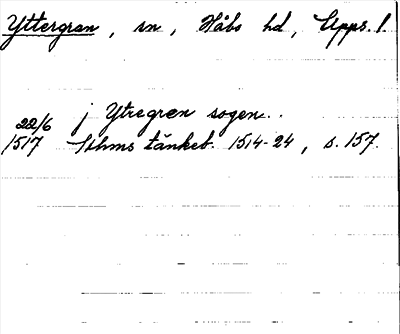 Yttergran, sn, Håbo hd, Upps. l.
j Ytregren sogen..
22/6
1517 Sthms tänkeb. 1514-24, s. 157.